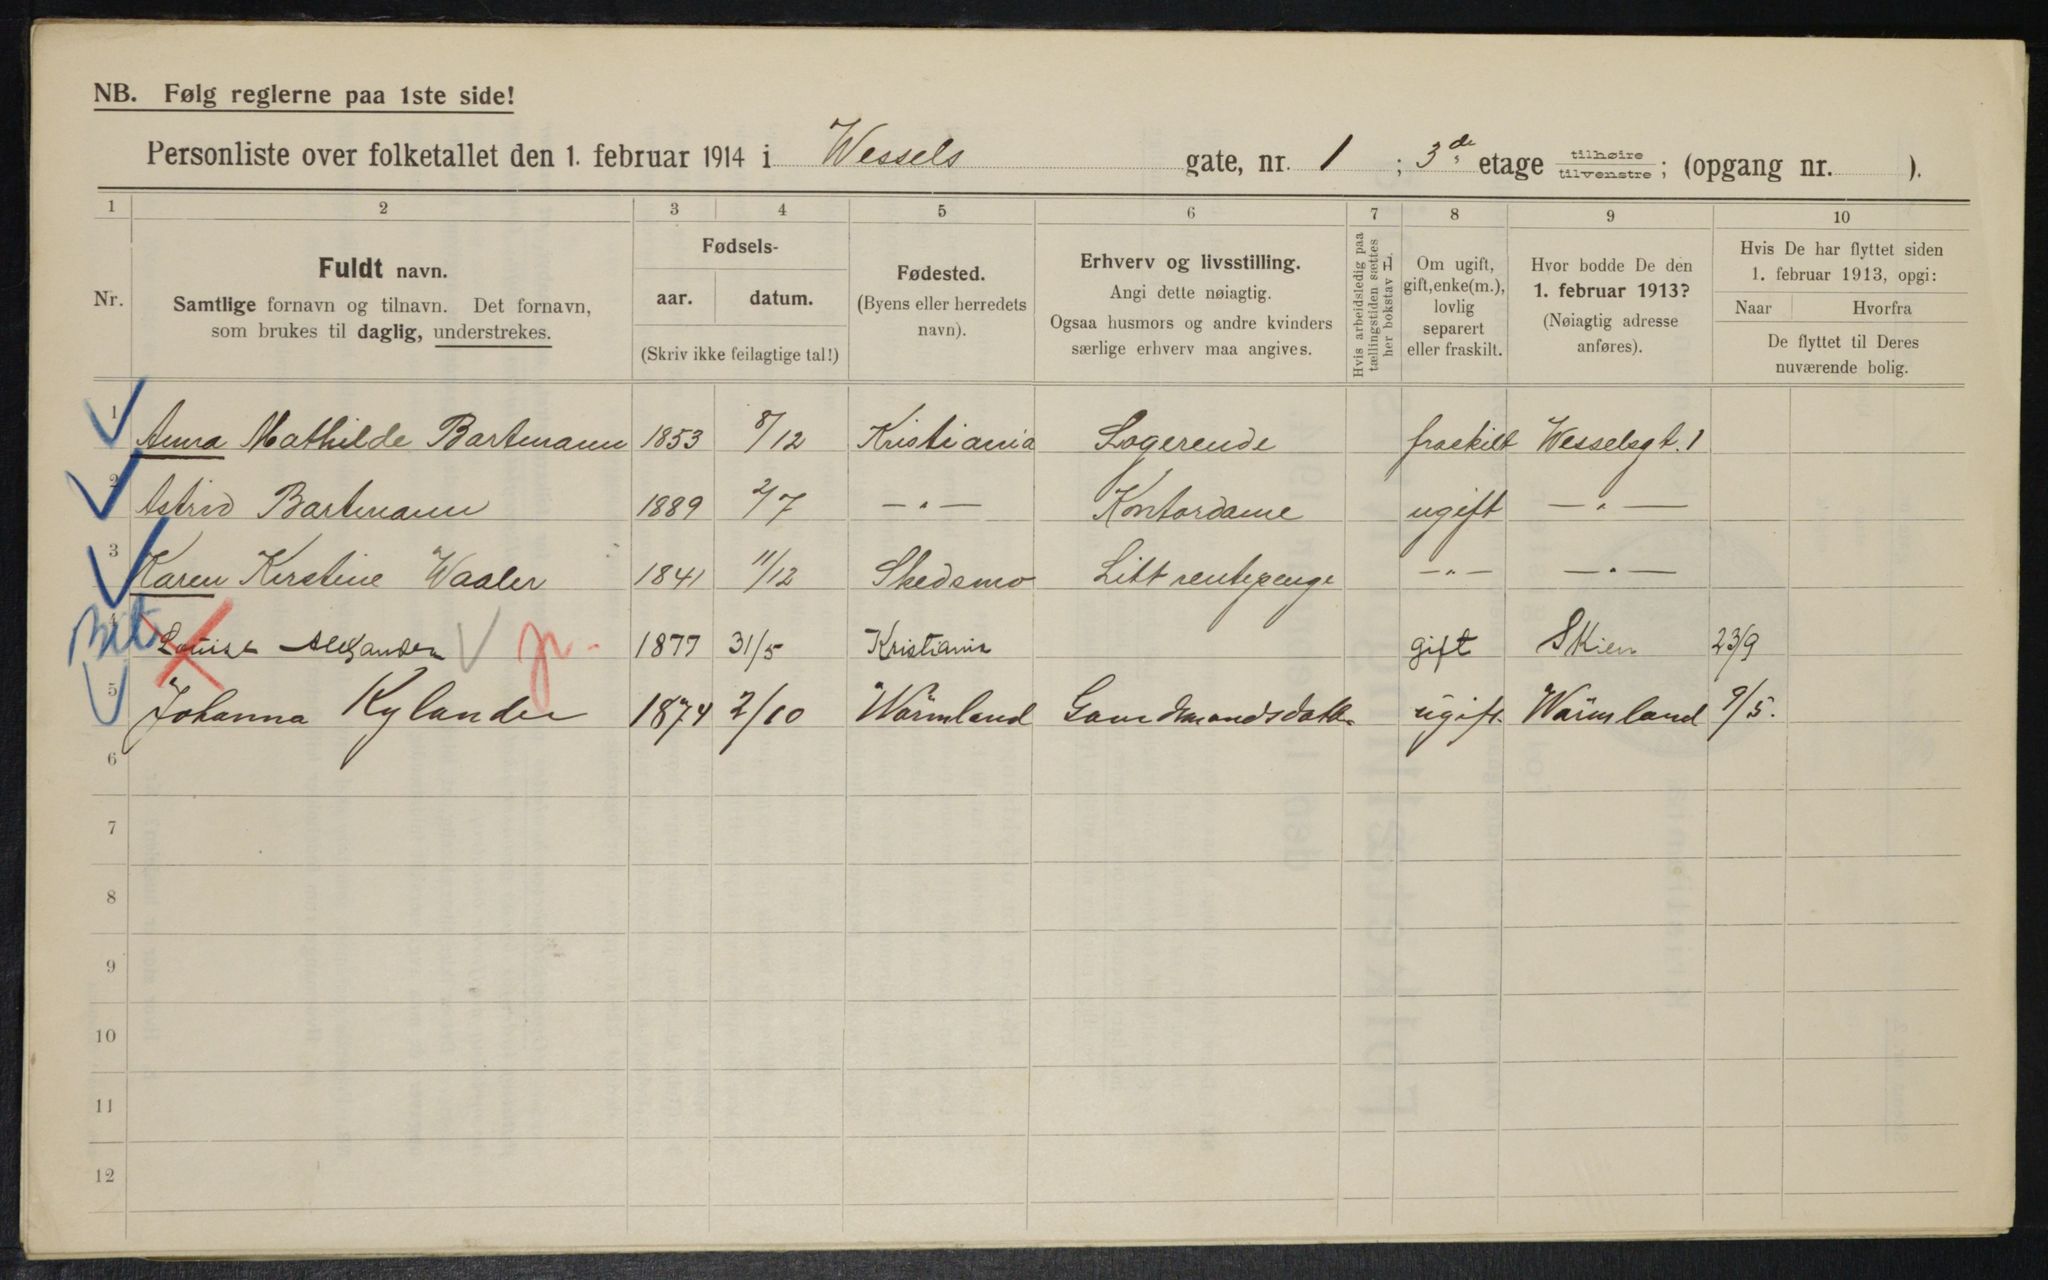 NB. Følg reglerne paa 1ste side!
Personliste over folketallet den 1. februar 1914 i Wessels gate, nr. 1 ; 3de etage tilhøire tilvenstre ; (opgang nr. ).
1 2 3 4 5 6 7 8 9 10
Nr.
Fuldt navn.
Samtlige fornavn og tilnavn. Det fornavn,
som brukes til daglig, understrekes.
Fødsels-
aar. datum.
(Skriv ikke feilagtige tal!)
Fødested.
(Byens eller herredets
navn).
Erhverv og livsstilling.
Angi dette nøiagtig.
Ogsaa husmors og andre kvinders
særlige erhverv maa angives.
Hvis arbeidsledig paa
tællingstiden sættes
her bokstav L.
Om ugift,
gift, enke(m.),
lovlig
separert
eller fraskilt.
Hvor bodde De den
1. februar 1913?
(Nøiagtig adresse
anføres).
Hvis De har flyttet siden
1. februar 1913, opgi:
Naar Hvorfra
De flyttet til Deres
nuværende bolig.
1 Anna Mathilde Bartmann 1853 8/12 Kristiania Logerende fraskilt Wesselsgt. 1
2 Astrid Bartmann 1889 2/7 —"— Kontordame ugift —"—
3 Karen Kirstine Waaler 1841 11/12 Skedsmo Litt rentepenge —"— —"—
4 Louise Alexander 1877 31/5 Kristiania gift Skien 23/9
5 Johanna Rylander 1874 2/10 Wärmland ugift Wärmland 9/5.
6
7
8
9
10
11
12